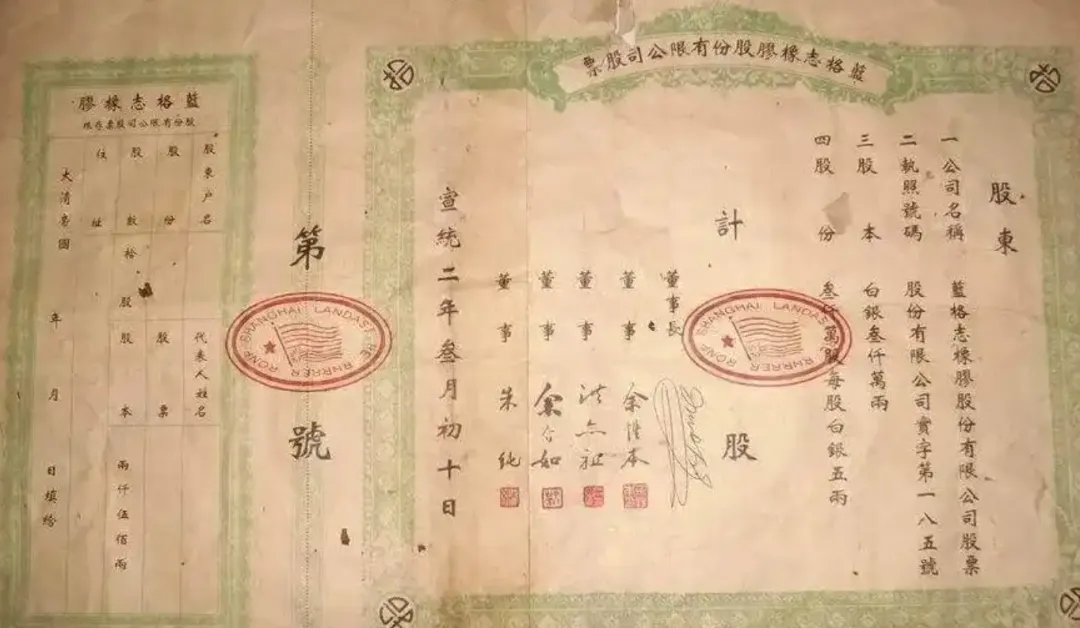 藍格志橡膠股份有限公司股票
股東
一公司名稱 藍格志橡膠股份有限公司股票
二執照號碼 股份有限公司實字第一八五號
三股本 白銀叁仟萬兩
四股份 叁仟萬股每股白銀五兩
計 股
董事長
董事 余惟本
董事
董事 余含如
董事 朱純
宣統二年叁月初十日
第 號
SHANGHAI LANDASTRE RNRRER RONE
SHANGHAI LANDASTRE RNRRER RONE
藍格志橡膠
股份有限公司股票存根
股東戶名 代表人姓名
股份 股票
股數 拾股 股本 兩仟伍佰兩
住址
大清帝國 年 月 日填給